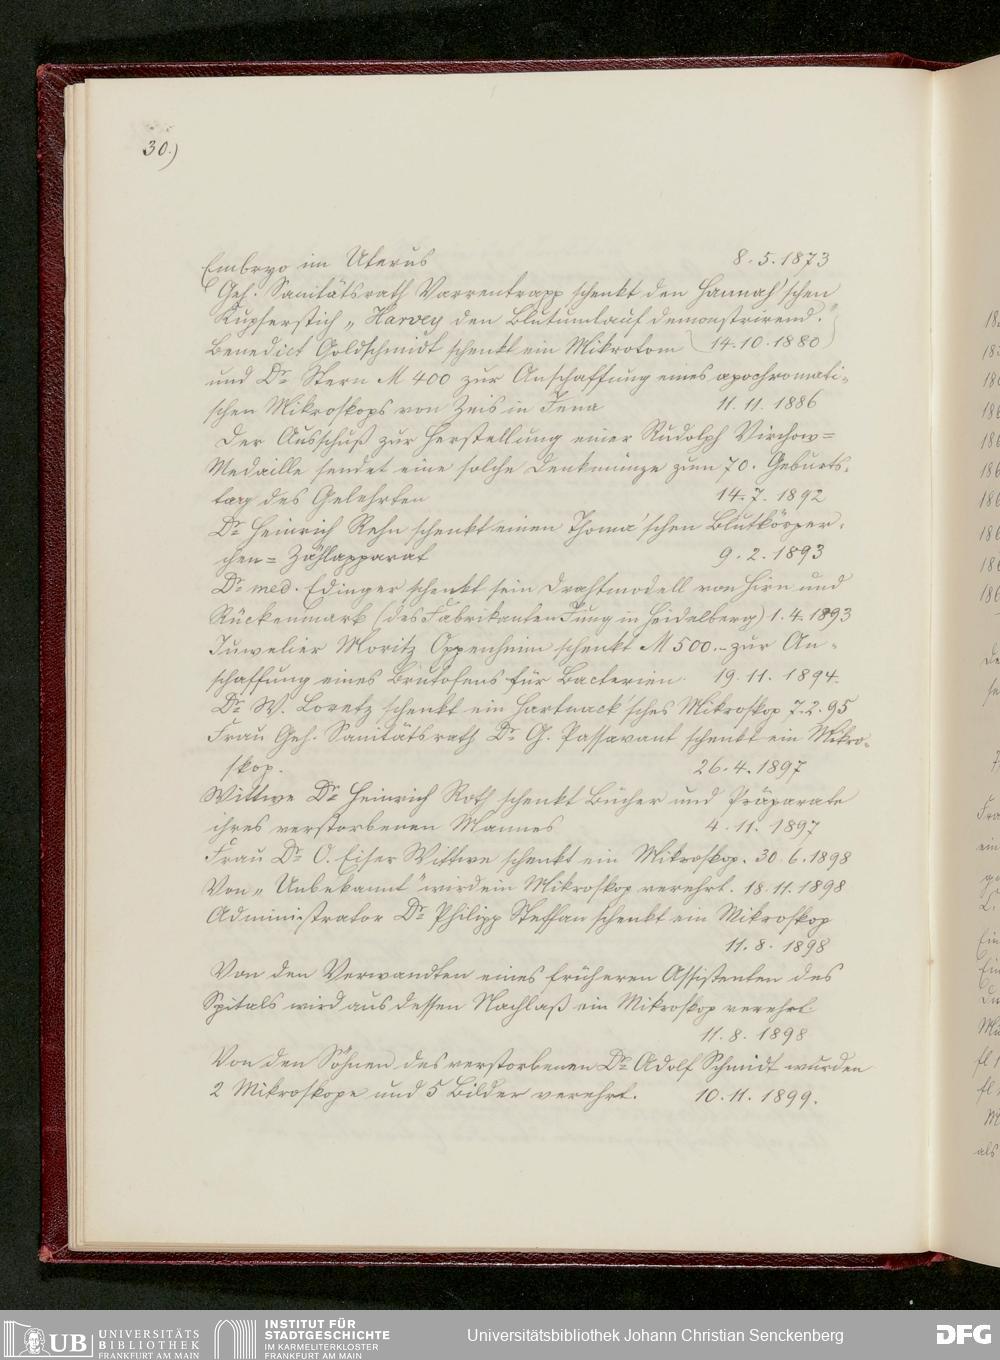 30.)
Embryo im Uterus 8.5.1873
Geh. Sanitätsrath Varrentrapp schenkt den Hannah'schen
Kupferstich „Harvey den Blutumlauf demonstrirend."
Benedict Goldschmidt schenkt ein Mikrotom (14.10.1880)
und Dr Stern M 400 zur Anschaffung eines apochromati-
schen Mikroskops von Zeis in Jena 11.11.1886
Der Ausschuß zur Herstellung einer Rudolph Virchow=
Medaille sendet eine solche Denkmünze zum 70. Geburts-
tag des Gelehrten 14.7.1892
Dr Heinrich Rehn schenkt einen Thoma'schen Blutkörper-
chen=Zählapparat 9.2.1893
Dr med. Edinger schenkt sein Drahtmodell von Hirn und
Rückenmark (des Fabrikanten Jung in Heidelberg) 1.4.1893
Juwelier Moritz Oppenheim schenkt M 500.- zur An-
schaffung eines Brutofens für Bacterien. 19.11.1894.
Dr W. Loretz schenkt ein Hartnack'sches Mikroskop 7.2.95
Frau Geh. Sanitätsrath Dr G. Passavant schenkt ein Mikro-
skop. 26.4.1897
Wittwe Dr Heinrich Roth schenkt Bücher und Präparate
ihres verstorbenen Mannes 4.11.1897
Frau Dr O. Eiser Wittwe schenkt ein Mikroskop. 30.6.1898
Von „Unbekannt" wird ein Mikroskop verehrt. 18.11.1898
Administrator Dr Philipp Steffan schenkt ein Mikroskop
11.8.1898
Von den Verwandten eines früheren Assistenten des
Spitals wird aus dessen Nachlaß ein Mikroskop verehrt
11.8.1898
Von den Söhnen des verstorbenen Dr Adolf Schmidt wurden
2 Mikroskope und 5 Bilder verehrt. 10.11.1899.
UB UNIVERSITÄTS
BIBLIOTHEK
FRANKFURT AM MAIN
INSTITUT FÜR
STADTGESCHICHTE
IM KARMELITERKLOSTER
FRANKFURT AM MAIN
Universitätsbibliothek Johann Christian Senckenberg
DFG